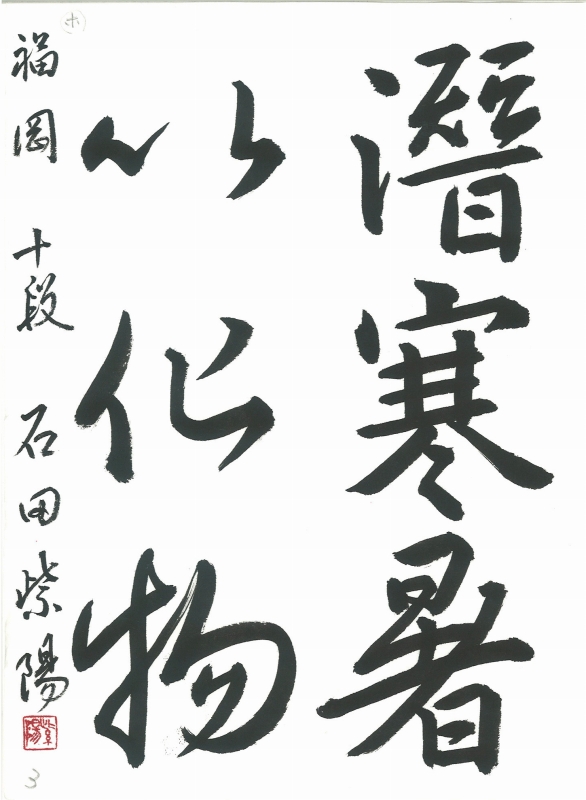 潛寒暑
以化物
福岡 十段 石田紫陽
紫陽
3